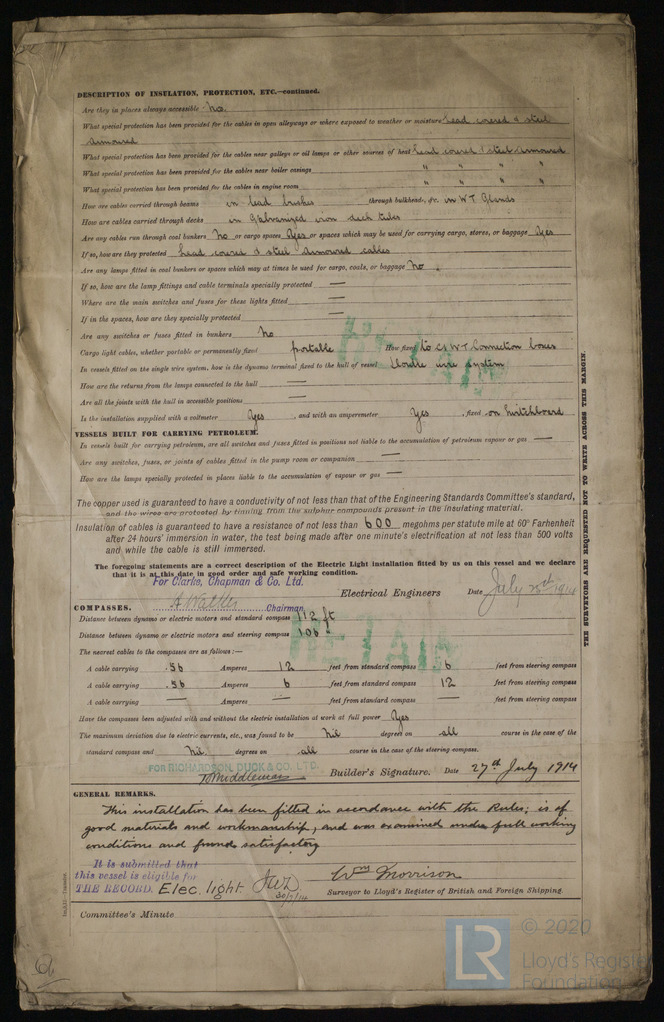 DESCRIPTION OF INSULATION, PROTECTION, ETC.—continued.
Are they in places always accessible No
What special protection has been provided for the cables in open alleyways or where exposed to weather or moisture Lead covered & steel
armoured
What special protection has been provided for the cables near galleys or oil lamps or other sources of heat Lead covered & steel armoured
What special protection has been provided for the cables near boiler casings " " " "
What special protection has been provided for the cables in engine room " " " "
How are cables carried through beams in lead bushes through bulkheads, &c. in W.T. Glands
How are cables carried through decks in Galvanized iron deck tubes
Are any cables run through coal bunkers No or cargo spaces Yes or spaces which may be used for carrying cargo, stores, or baggage Yes
If so, how are they protected Lead covered & steel armoured cables
Are any lamps fitted in coal bunkers or spaces which may at times be used for cargo, coals, or baggage No.
If so, how are the lamp fittings and cable terminals specially protected —
Where are the main switches and fuses for these lights fitted —
If in the spaces, how are they specially protected —
Are any switches or fuses fitted in bunkers No
Cargo light cables, whether portable or permanently fixed portable How fixed to W.T. Connection boxes
In vessels fitted on the single wire system, how is the dynamo terminal fixed to the hull of vessel Double wire system
How are the returns from the lamps connected to the hull —
Are all the joints with the hull in accessible positions —
Is the installation supplied with a voltmeter Yes , and with an amperemeter Yes , fixed on Switchboard
VESSELS BUILT FOR CARRYING PETROLEUM.
In vessels built for carrying petroleum, are all switches and fuses fitted in positions not liable to the accumulation of petroleum vapour or gas —
Are any switches, fuses, or joints of cables fitted in the pump room or companion —
How are the lamps specially protected in places liable to the accumulation of vapour or gas —
The copper used is guaranteed to have a conductivity of not less than that of the Engineering Standards Committee's standard,
and the wires are protected by tinning from the sulphur compounds present in the insulating material.
Insulation of cables is guaranteed to have a resistance of not less than 600 megohms per statute mile at 60° Farhenheit
after 24 hours' immersion in water, the test being made after one minute's electrification at not less than 500 volts
and while the cable is still immersed.
The foregoing statements are a correct description of the Electric Light installation fitted by us on this vessel and we declare
that it is at this date in good order and safe working condition.
For Clarke, Chapman & Co. Ltd.
Electrical Engineers Date July 25th 1914
Chairman.
COMPASSES.
Distance between dynamo or electric motors and standard compass 112 ft
Distance between dynamo or electric motors and steering compass 106 "
The nearest cables to the compasses are as follows:—
A cable carrying .56 Amperes 12 feet from standard compass 6 feet from steering compass
A cable carrying .56 Amperes 6 feet from standard compass 12 feet from steering compass
A cable carrying — Amperes — feet from standard compass — feet from steering compass
Have the compasses been adjusted with and without the electric installation at work at full power Yes
The maximum deviation due to electric currents, etc., was found to be Nil degrees on all course in the case of the
standard compass and Nil degrees on all course in the case of the steering compass.
FOR RICHARDSON, DUCK & CO., LTD.
Builder's Signature. Date 27th July 1914
GENERAL REMARKS.
This installation has been fitted in accordance with the Rules; is of
good materials and workmanship, and was examined under full working
conditions and found satisfactory
It is submitted that
this vessel is eligible for
THE RECORD. Elec. light. JWD 30/7/14
Wm Morrison
Surveyor to Lloyd's Register of British and Foreign Shipping.
Committee's Minute
THE SURVEYORS ARE REQUESTED NOT TO WRITE ACROSS THIS MARGIN.
RETAIN
RETAIN
LR
© 2020
Lloyd's Register
Foundation